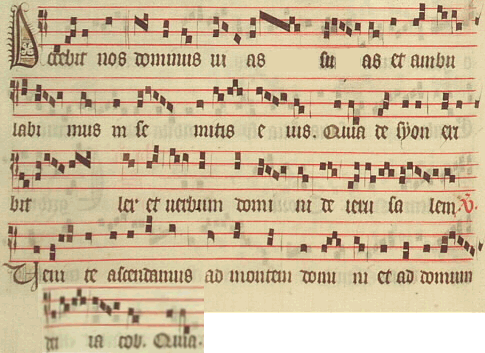 Docebit nos dominus ui as su as et ambu
labi mus in se mitis e ius. Quia de syon exi
bit lex et uerbum domi ni de ieru sa lem. V.
Veni te ascendamus ad montem domi ni et ad domum
dei ia cob. Quia.